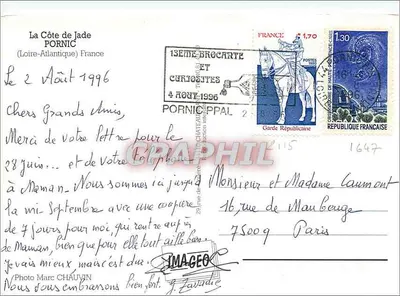 La Côte de Jade
PORNIC
(Loire-Atlantique) France
13EME BROCANTE
ET
CURIOSITES
4 AOUT 1996
PORNIC PPAL
FRANCE 1,70
Garde Républicaine
1.30
REPUBLIQUE FRANCAISE
K 115
1647
Le 2 Août 1996
Chers Grands Amis,
Merci de votre lettre pour le
28 juin... et de votre
à Maman. Nous sommes ici jusqu'à
la mi Septembre avec une coupure
de 7 jours pour moi, qui rentre auprès
de Maman, bien que pour elle tout aille bien.
Je vais mieux, mais c'est dur.
Nous vous embrassons bien fort.
Monsieur et Madame Caumont
16, rue de Maubeuge
75009
Paris
GRAPHIL
IMAGEO
Photo Marc CHAUVIN